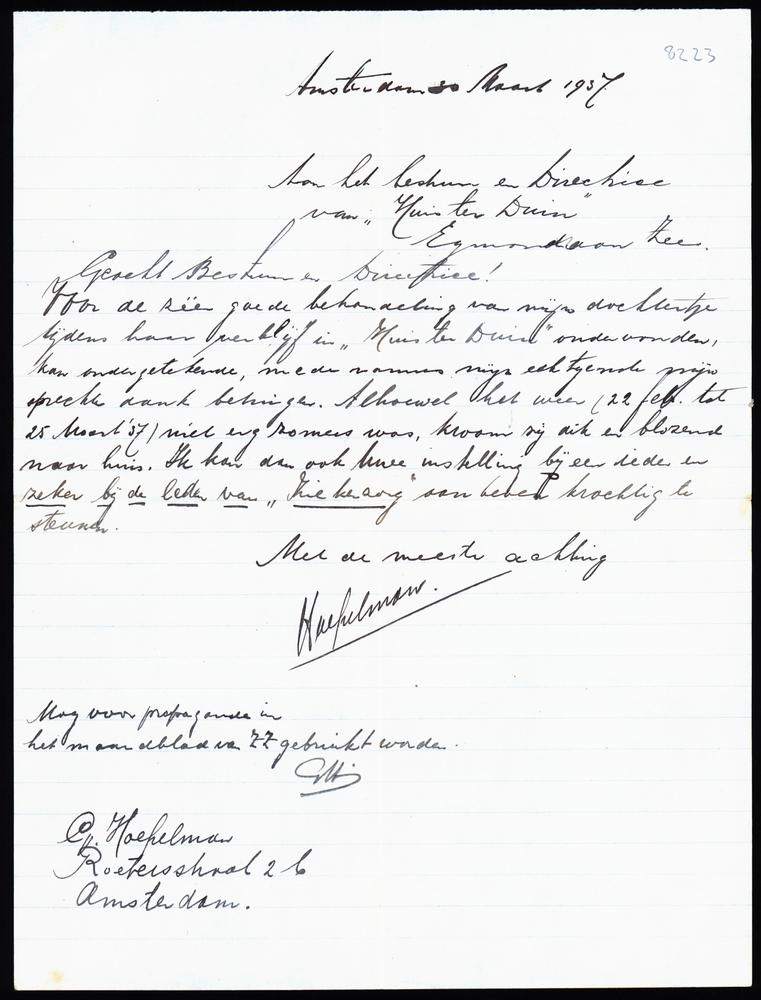 8223
Amsterdam 30 Maart 1937
Aan het bestuur en Directrice
van „Huis ter Duin"
Egmond aan Zee.
Geacht Bestuur en Directrice!
Voor de zéér goede behandeling van mijn dochtertje
tijdens haar verblijf in „Huis ter Duin" ondervonden,
kan ondergetekende, mede namens mijn echtgenote
oprecht dank betuigen. Alhoewel het weer (22 feb. tot
25 Maart '37) niet erg zomers was, kwam zij dik en blozend
naar huis. Ik kan dan ook Uwe instelling bij een ieder en
zeker bij de leden van „Ziekenzorg" aanbevelen krachtig te
steunen.
Met de meeste achting
Hoepelman.
Mag voor propaganda in
het maandblad van ZZ gebruikt worden.
C. Hoepelman
Roetersstraat 2 b
Amsterdam.